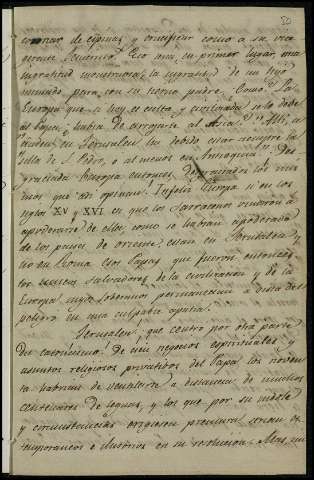 50
coronar de espinas y crucificar como a su vice-
gerente Jesucristo. Eso era, en primer lugar, una
ingratitud monstruosa, la ingratitud de un hijo
inmundo para con su tierno padre. ¡Como! La
Europa que si hoy es culta y civilizada se lo debe
al Papa, ¿habia de arrojarle al Asia? Allí, a-
ñaden, en Jerusalen ha debido estar siempre la
silla de S. Pedro, o al menos en Antioquia. ¡Des-
graciada Europa entonces! ¡Desgraciados los mis-
mos que asi opinan! ¡Infeliz Europa si en los
siglos XV y XVI en que los Sarracenos vinieron a
apoderarse de ella, como se habian apoderado
de los paises de oriente, esan en Jerusalen y
no en Roma esos Papas que fueron entonces
los unicos salvadores de la civilizacion y de la
Europa, cuyos soberanos permanecian a vista del
peligro en una culpable apatia!
¡Jerusalen! ¡que centro por otra parte
del catolicismo! De cien negocios espirituales y
asuntos religiosos privativos del Papa los noven-
ta habrian de ventilarse a distancia de muchos
centenares de leguas, y los que por su indole
y circunstancias exigiesen premura serian ex-
temporaneos e ilusorios en su resolucion. Mas, un